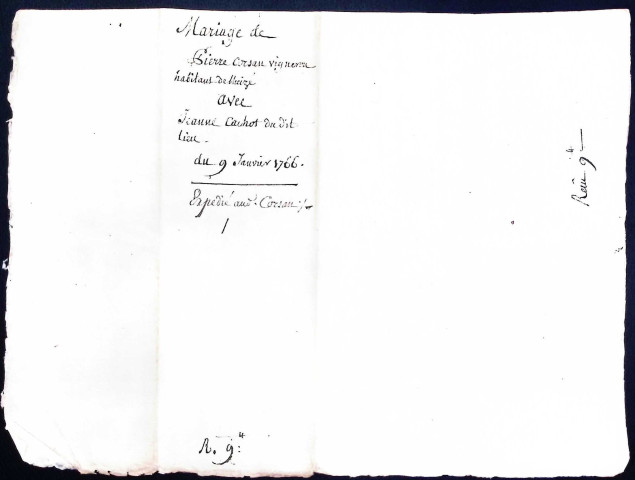 Mariage de
Pierre Corsan vigneron
habitant de
avec
Jeanne Cachot du dit
lieu.
du 9 Janvier 1766.
Expédié aud. Corsan
R. 9#
9#